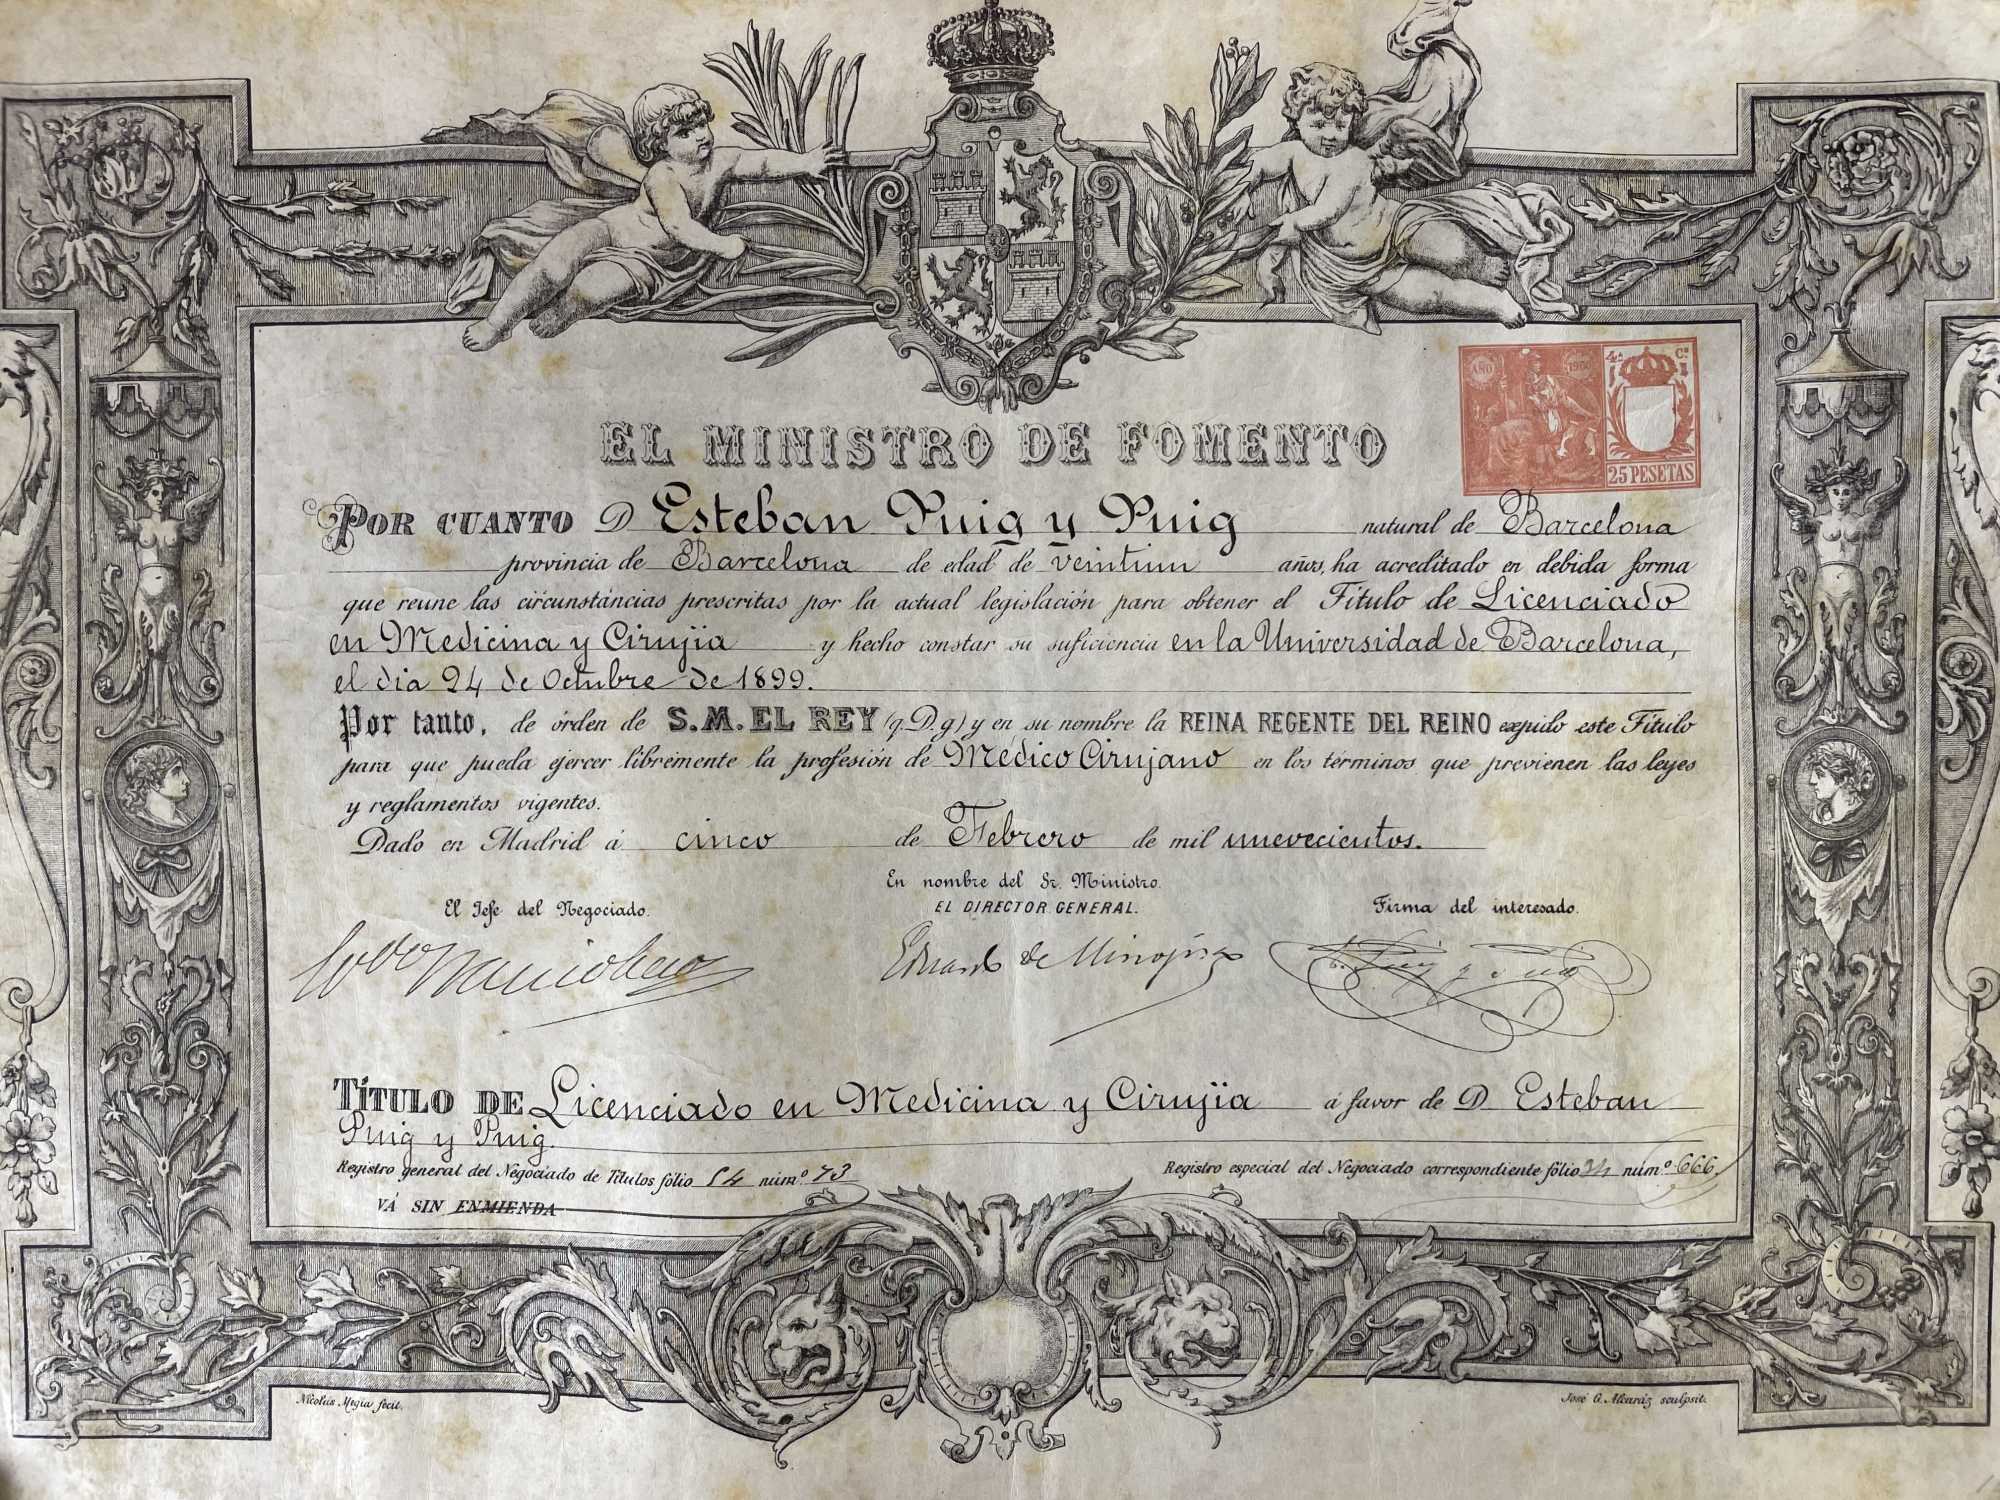 AÑO 1900 4ª Cª
25 PESETAS
EL MINISTRO DE FOMENTO
POR CUANTO D Esteban Puig y Puig natural de Barcelona
provincia de Barcelona de edad de veintiun años, ha acreditado en debida forma
que reune las circunstáncias prescritas por la actual legislación para obtener el Título de Licenciado
en Medicina y Cirujía y hecho constar su suficiencia en la Universidad de Barcelona,
el dia 24 de Octubre de 1899.
Por tanto, de órden de S.M. EL REY (q.D.g) y en su nombre la REINA REGENTE DEL REINO expido este Título
para que pueda ejercer libremente la profesión de Médico Cirujano en los términos que previenen las leyes
y reglamentos vigentes.
Dado en Madrid á cinco de Febrero de mil nuevecientos.
En nombre del Sr. Ministro.
El Jefe del Negociado. EL DIRECTOR GENERAL. Firma del interesado.
Eduardo de E. Puig y Puig
TÍTULO DE Licenciado en Medicina y Cirujía á favor de D. Esteban
Puig y Puig.
Registro general del Negociado de Títulos fólio 54 núm.º 73 Registro especial del Negociado correspondiente fólio 34 núm.º 666
VÁ SIN ENMIENDA
Nicolás Megia fecit. José G. Alcaráz sculpsit.